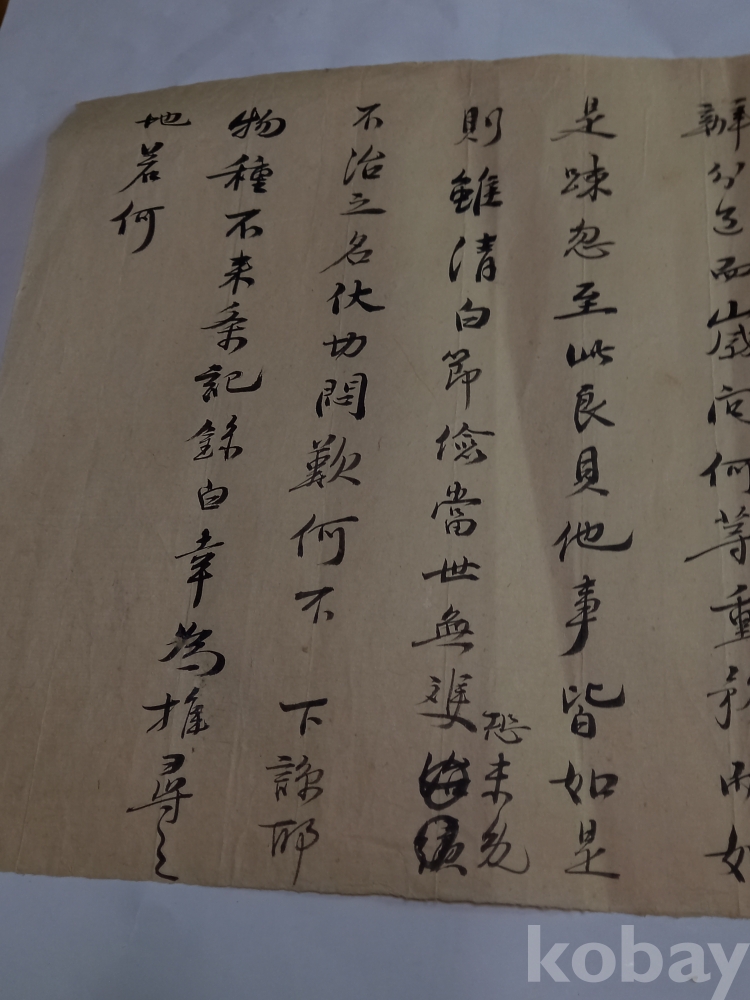 辦分㐲而歲何何等重 如
是疎忽至此良貝他事皆如是
則雖清白節儉當世無雙恐未免
不治之名伏切悶歎何不 下諒耶
物種不來条記錄白幸為推尋之
地若何
kobay